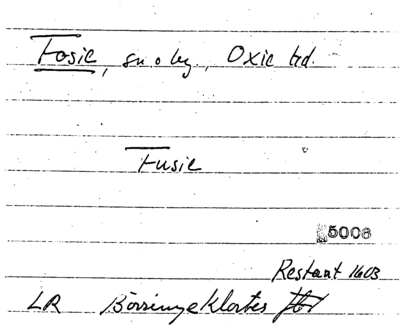 Fosie, sn o by, Oxie hd.
Fusie
5008
Restant 1603
LR Börringe Klosters